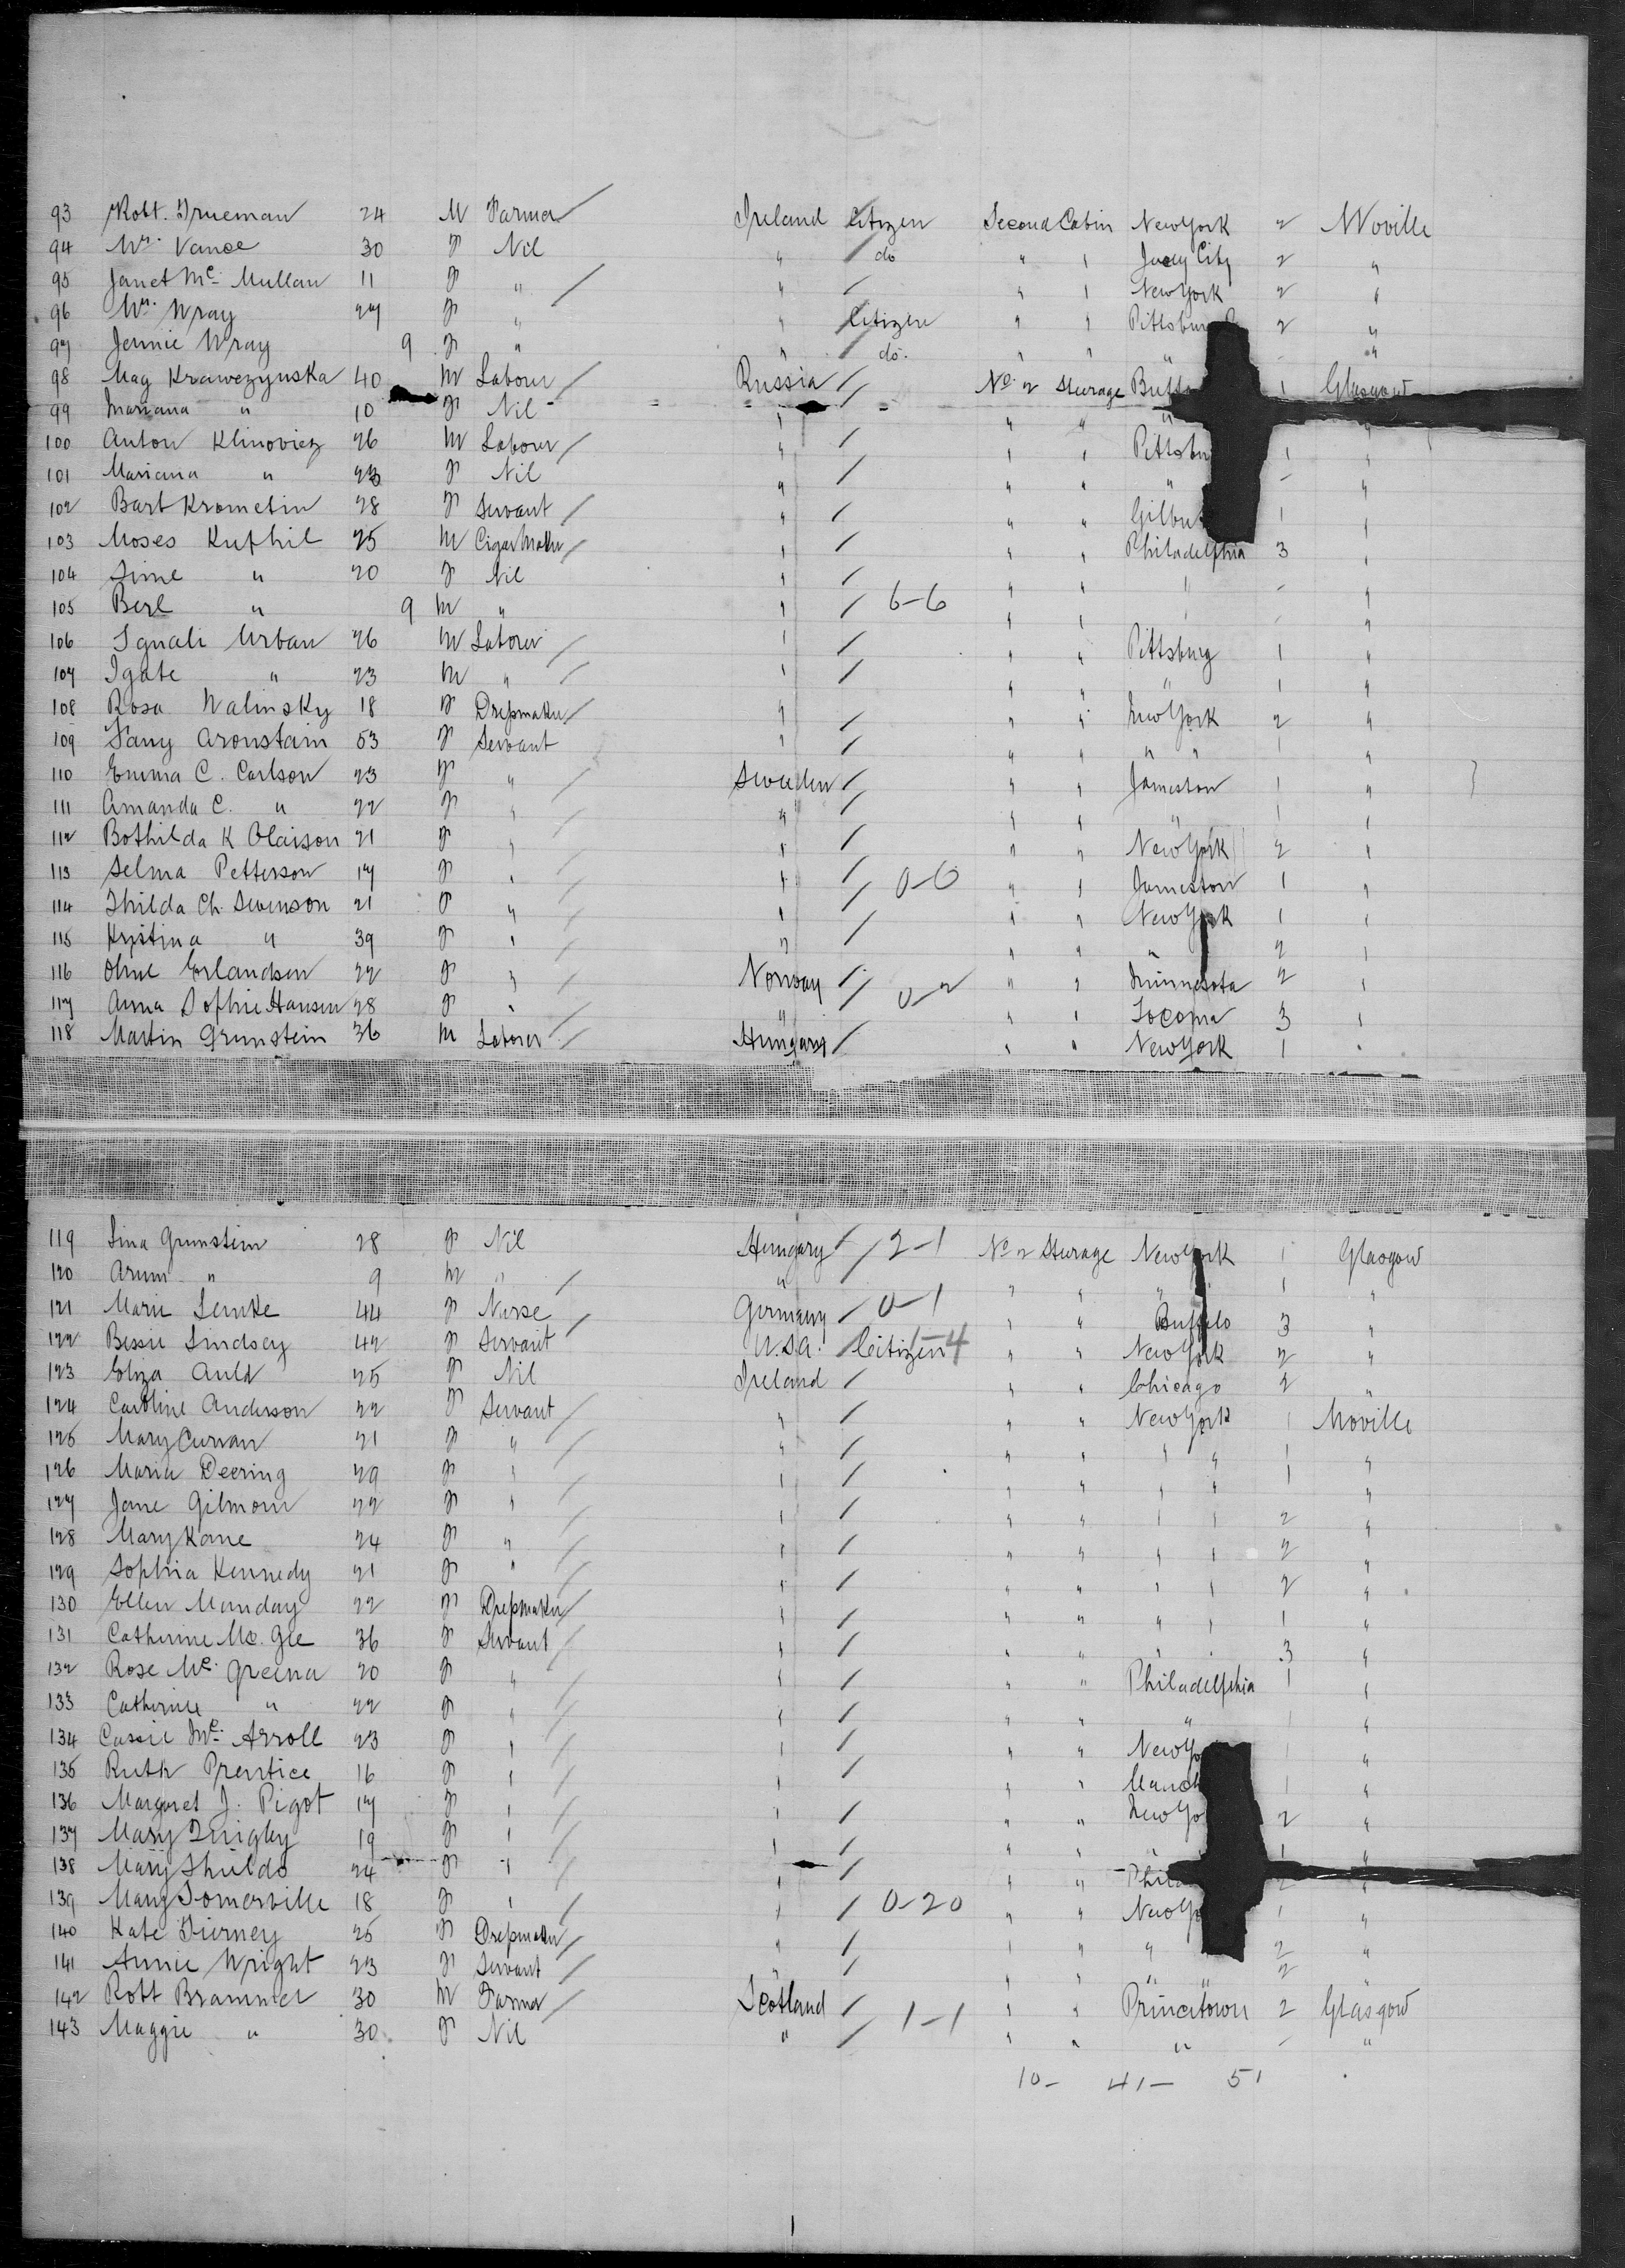 93 Robt. Trueman 24 M Farmer Ireland Citizen Second Cabin New York 2 Moville
94 Mrs. Vance 30 F Nil " do " " Jersey City 2 "
95 Janet Mc Mullan 11 F " " " " New York 2 "
96 Mrs. Wray 27 F " " Citizen " " Pittsburg 2 "
97 Jennie Wray 9 F " " do. " " " "
98 Mag Krawczynska 40 M Labourer Russia No 2 Steerage 1 Glasgow
99 Mariana " 10 F Nil " " " " "
100 Anton Klinovicz 26 M Labourer " " " 1 "
101 Mariana " 23 F Nil " " " " - "
102 Bart Krometin 28 F Servant " " " 1 "
103 Moses Kuphil 25 M Cigar Maker " " " Philadelphia 3 "
104 Sime " 20 F Nil " " " " - "
105 Berl " 9 M " " 6-6 " " " - "
106 Ignali Urban 26 M Laborer " " " Pittsburg 1 "
107 Igate " 23 M " " " " " 1 "
108 Rosa Walinsky 18 F Dressmaker " " " New York 2 "
109 Fany Aronstam 53 F Servant " " " " " 1 "
110 Emma C. Carlson 23 F " Sweden " " Jameston 1 "
111 Amanda C. " 22 F " " " " " 1 "
112 Bothilda K Olaison 21 F " " " " New York 2 "
113 Selma Petterson 17 F " " 0-6 " " Jameston 1 "
114 Thilda Ch. Swenson 21 F " " " " New York 1 "
115 Kristina " 39 F " " " " " 2 "
116 Erlandsen 22 F " Norway " " Minnesota 2 "
117 Anna Sophie Hansen 28 F " " 0-2 " " Tocoma 3 "
118 Martin Grunstein 36 M Laborer Hungary " " New York 1 "
119 Lina Grunstein 28 F Nil Hungary 2-1 No 2 Steerage New York 1 Glasgow
120 Arum " 9 M " " " " " 1 "
121 Marie Lemke 44 F Nurse Germany 0-1 " " Buffalo 3 "
122 Bessie Lindsay 42 F Servant U.S.A. Citizen 4 " " New York 2 "
123 Eliza Auld 25 F Nil Ireland " " Chicago 2 "
124 Caroline Anderson 22 F Servant " " " New York 1 Moville
125 Mary Curran 21 F " " " " " " 1 "
126 Maria Deering 29 F " " " " " " 1 "
127 Jane Gilmour 22 F " " " " " " 2 "
128 Mary Kane 24 F " " " " " " 2 "
129 Sophia Kennedy 21 F " " " " " " 2 "
130 Ellen Munday 22 F Dressmaker " " " " " 1 "
131 Catherine Mc. Gee 36 F Servant " " " " " 3 "
132 Rose Mc. Greena 20 F " " " " Philadelphia 1 "
133 Catherine " 22 F " " " " " 1 "
134 Cassie Mc. Arroll 23 F " " " " 1 "
135 Ruth Prentice 16 F " " " " 1 "
136 Margaret J. Pigot 17 F " " " " 2 "
137 Mary Quigley 19 F " " " " " 1 "
138 Mary Shields 24 F " " " " 2 "
139 Mary Somerville 18 F " " 0-20 " " 1 "
140 Kate Tierney 25 F Dressmaker " " " " 2 "
141 Annie Wright 23 F Servant " " " " " 2 "
142 Robt Brammer 30 M Farmer Scotland " " Princetown 2 Glasgow
143 Maggie " 30 F Nil " 1-1 " " " - "
10- 41- 51